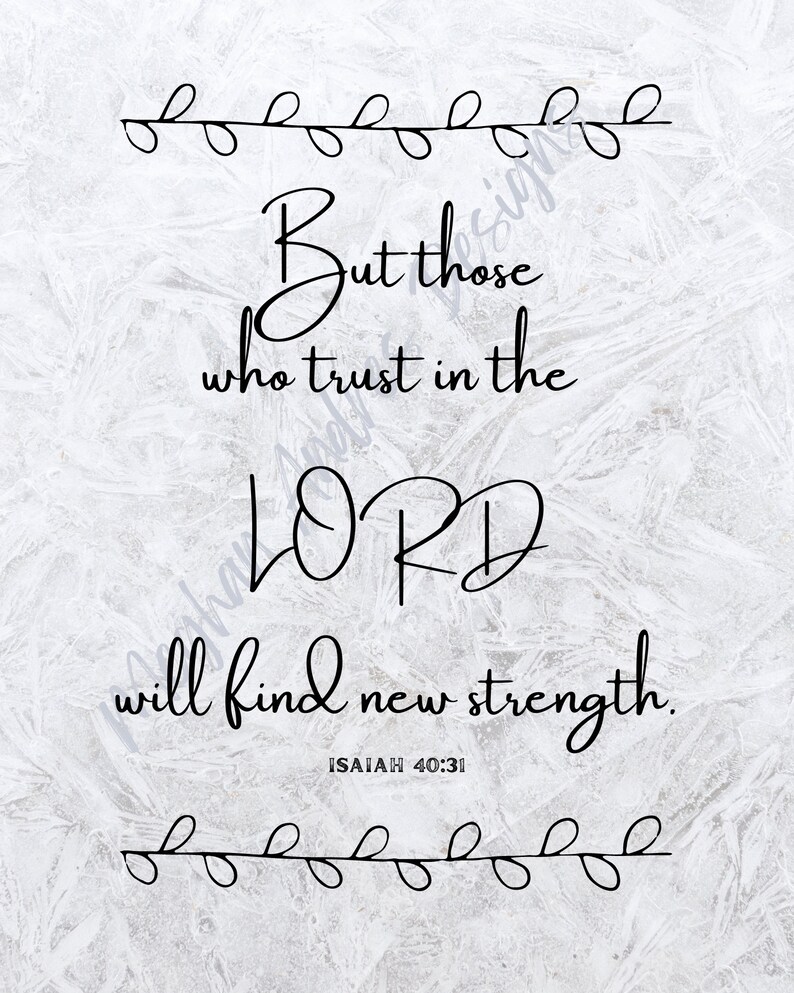 But those
who trust in the
LORD
will find new strength.
ISAIAH 40:31
Meghan Andrus Designs